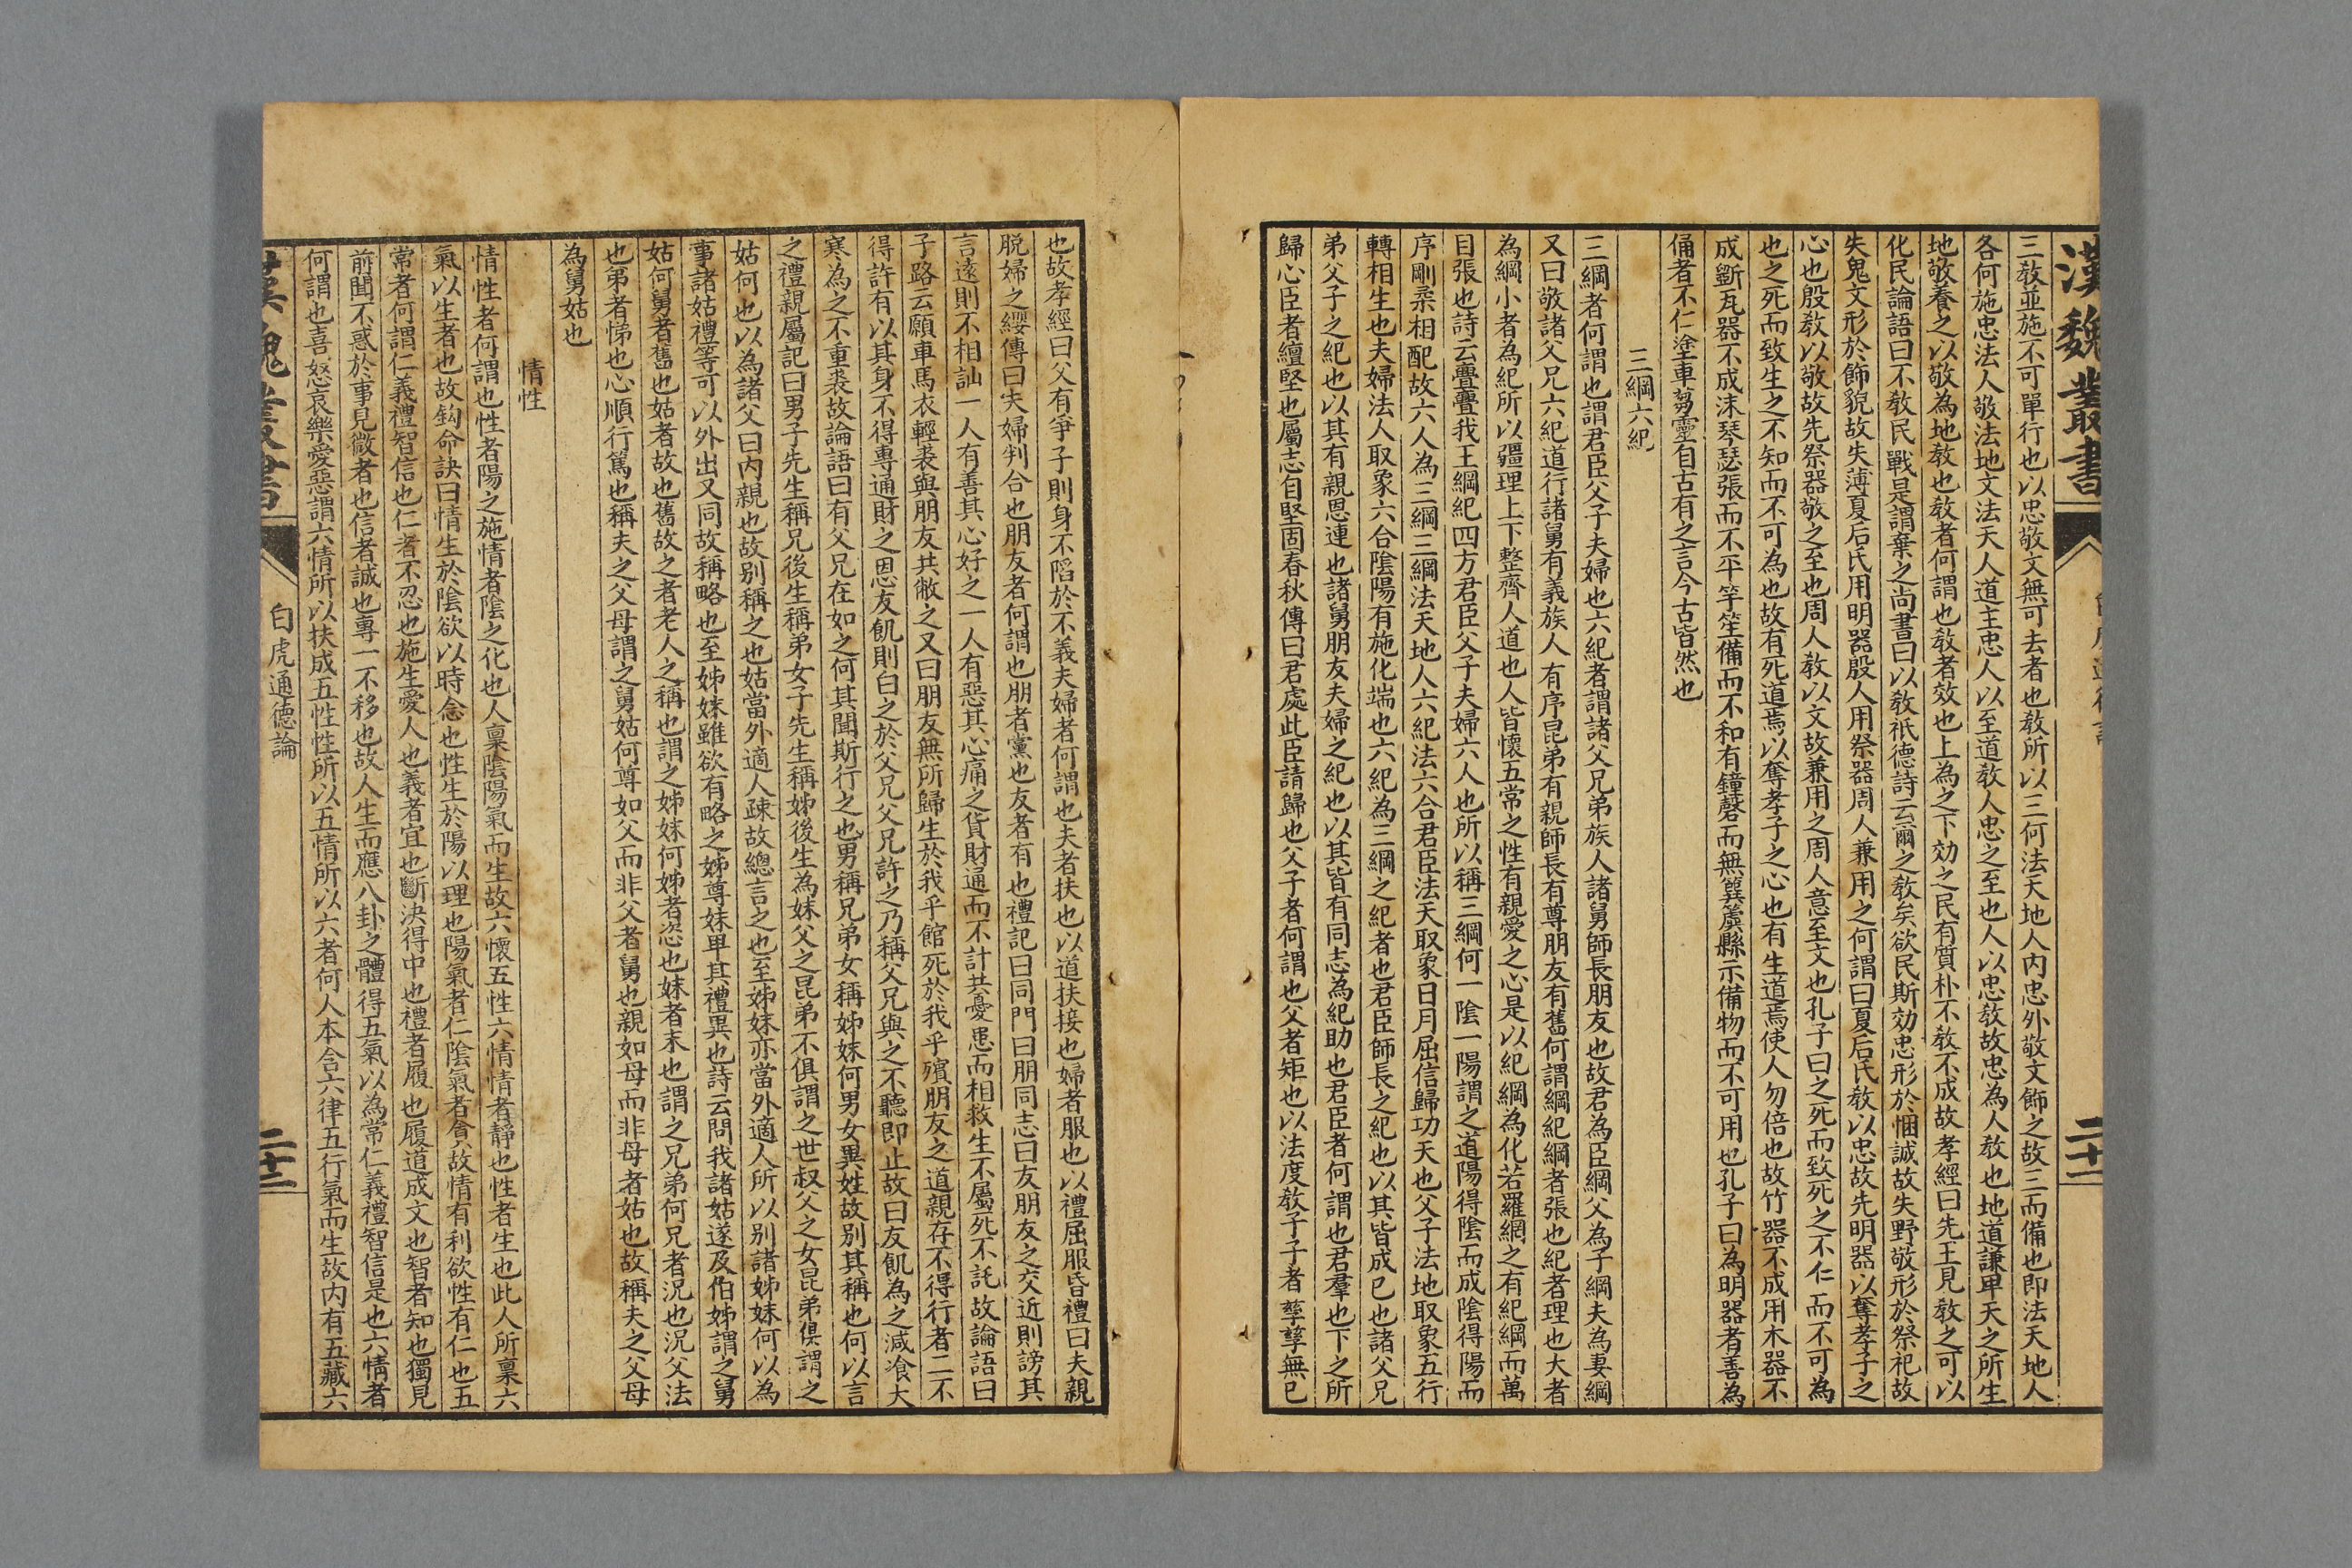 漢魏叢書
二十二
三敎並施不可單行也以忠敬文無可去者也敎所以三何法天地人內忠外敬文飾之故三而備也即法天地人
各何施忠法人敬法地文法天人道主忠人以至道敎人忠之至也人以忠敎故忠為人敎也地道謙卑天之所生
地敬養之以敬為地敎也敎者何謂也敎者效也上為之下効之民有質朴不敎不成故孝經曰先王見敎之可以
化民論語曰不敎民戰是謂棄之尚書曰以敎祇德詩云爾之敎矣欲民斯効忠形於悃誠故失野敬形於祭祀故
失鬼文形於飾貌故失薄夏后氏用明器殷人用祭器周人兼用之何謂曰夏后氏敎以忠故先明器以奪孝子之
心也殷敎以敬故先祭器敬之至也周人敎以文故兼用之周人意至文也孔子曰之死而致死之不仁而不可為
也之死而致生之不知而不可為也故有死道焉以奪孝子之心也有生道焉使人勿倍也故竹器不成用木器不
成斵瓦器不成沬琴瑟張而不平竽笙備而不和有鐘磬而無簨簴縣示備物而不可用也孔子曰為明器者善為
俑者不仁塗車芻靈自古有之言今古皆然也
三綱六紀
三綱者何謂也謂君臣父子夫婦也六紀者謂諸父兄弟族人諸舅師長朋友也故君為臣綱父為子綱夫為妻綱
又曰敬諸父兄六紀道行諸舅有義族人有序昆弟有親師長有尊朋友有舊何謂綱紀綱者張也紀者理也大者
為綱小者為紀所以疆理上下整齊人道也人皆懷五常之性有親愛之心是以紀綱為化若羅網之有紀綱而萬
目張也詩云亹亹我王綱紀四方君臣父子夫婦六人也所以稱三綱何一陰一陽謂之道陽得陰而成陰得陽而
序剛柔相配故六人為三綱三綱法天地人六紀法六合君臣法天取象日月屈信歸功天也父子法地取象五行
轉相生也夫婦法人取象六合陰陽有施化端也六紀為三綱之紀者也君臣師長之紀也以其皆成已也諸父兄
弟父子之紀也以其有親恩連也諸舅朋友夫婦之紀也以其皆有同志為紀助也君臣者何謂也君羣也下之所
歸心臣者纏堅也屬志自堅固春秋傳曰君處此臣請歸也父子者何謂也父者矩也以法度敎子子者孳孳無已
也故孝經曰父有爭子則身不陷於不義夫婦者何謂也夫者扶也以道扶接也婦者服也以禮屈服昏禮曰夫親
脫婦之纓傳曰夫婦判合也朋友者何謂也朋者黨也友者有也禮記曰同門曰朋同志曰友朋友之交近則謗其
言遠則不相訕一人有善其心好之一人有惡其心痛之貨財通而不計共憂患而相救生不屬死不託故論語曰
子路云願車馬衣輕裘與朋友共敝之又曰朋友無所歸生於我乎館死於我乎殯朋友之道親存不得行者二不
得許友以其身不得專通財之恩友飢則白之於父兄父兄許之乃稱父兄與之不聽即止故曰友飢為之減飡大
寒為之不重裘故論語曰有父兄在如之何其聞斯行之也男稱兄弟女稱姊妹何男女異姓故別其稱也何以言
之禮親屬記曰男子先生稱兄後生稱弟女子先生稱姊後生為妹父之昆弟不俱謂之世叔父之女昆弟俱謂之
姑何也以為諸父曰內親也故別稱之也姑當外適人疎故總言之也至姊妹亦當外適人所以別諸姊妹何以為
事諸姑禮等可以外出又同故稱略也至姊妹雖欲有略之姊尊妹卑其禮異也詩云問我諸姑遂及伯姊謂之舅
姑何舅者舊也姑者故也舊故之者老人之稱也謂之姊妹何姊者恣也妹者末也謂之兄弟何兄者況也況父法
也弟者悌也心順行篤也稱夫之父母謂之舅姑何尊如父而非父者舅也親如母而非母者姑也故稱夫之父母
為舅姑也
情性
情性者何謂也性者陽之施情者陰之化也人稟陰陽氣而生故六懷五性六情情者靜也性者生也此人所稟六
氣以生者也故鈎命訣曰情生於陰欲以時念也性生於陽以理也陽氣者仁陰氣者貪故情有利欲性有仁也五
常者何謂仁義禮智信也仁者不忍也施生愛人也義者宜也斷決得中也禮者履也履道成文也智者知也獨見
前聞不惑於事見微者也信者誠也專一不移也故人生而應八卦之體得五氣以為常仁義禮智信是也六情者
何謂也喜怒哀樂愛惡謂六情所以扶成五性性所以五情所以六者何人本含六律五行氣而生故內有五藏六
漢魏叢書
白虎通德論
二十二